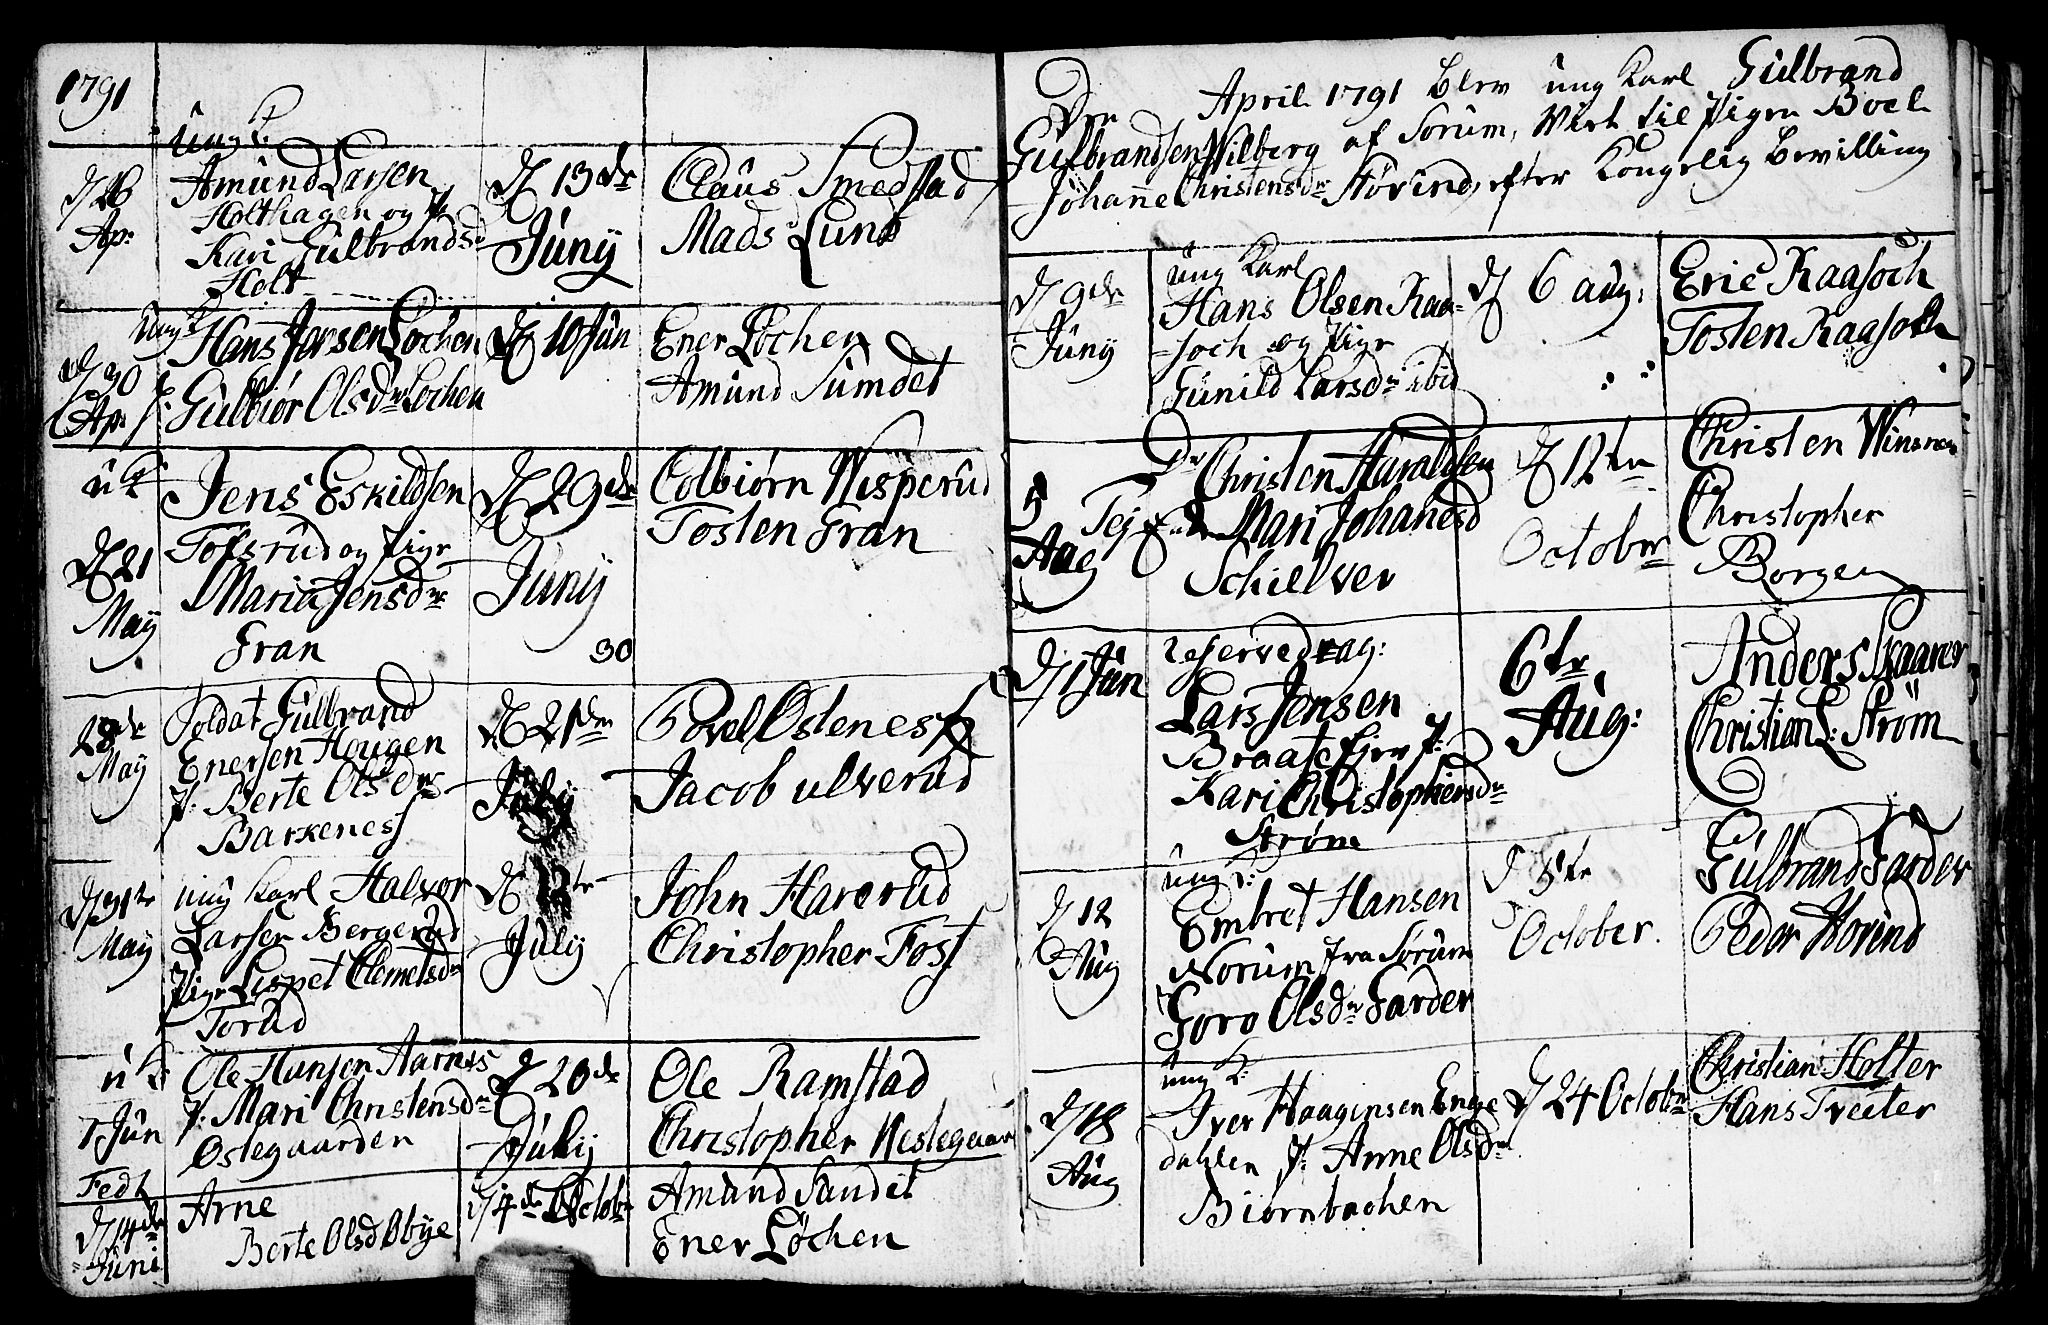 1791
ung K.
d 26
Ap:
Amund Larsen
Holthagen og P
Kari Gulbrandsd
Holt
d 13de
Juny
Claus Smedstad
Mads Lund
ung K
d 30
Ap
Hans Jensen Løchen
P: Gulbiør Olsdr Løchen
d 10 Jun
Ener Løchen
Amund Sumdet
u K
d 21
May
Jens Eskildsen
Tofsrud og Pige
Maria Jensdr
Fran
d 29de
Juny
30
Colbiørn Wesperud
Tosten Fran
28de
May
Soldat Gulbrand
Enersen Hougen
P: Berte Olsdr
Barkeness
d 21de
July
Povel Osteness
Jacob ulverud
d 31te
May
ung Karl Halvor
Larsen Bergerud
Pige Lispet Clemetsdr
Torud
d 12te
July
John Harerud
Christopher Fost
u K
7 Jun
Ole Hansen Aarnes
P: Mari Christensdr
Ostegaarden
d 20de
July
Ole Ramstad
Christopher Westegaar
Fedt
d 14de
Juni
Arne
Berte Olsd Obye
d 4de Octobr
Amund Sandet
Ener Løchen
Den April 1791 blev ung Karl Gulbrand
Gulbrandsen Wilberg af Sørum, Viet til Pigen Boel
Johanne Christensdr Hovind, efter Kongelig bevilling
d 9de
Juny
ung Karl
Hans Olsen Raa-
-soch og Pige
Gunild Larsdr ibid
d 6 aug:
Eric Raasoch
Tosten Raasoch
5
Aug
Dr Christen Haraldsen
Tej Mari Johanesd
Schielver
d 12te
October
Christen
Christopher
Borgen
d 1 Jun
reserved rag:
Lars Jensen
Braate P:
Kari Christophersdr
Strøm
6te
Aug:
Anders Skaarer
Christian L: Strøm
d 12
Aug
ung K:
Embret Hansen
Norum fra Sørum
Goro Olsdr Farder
d 5te
October.
Gulbrand Farder
Peder Hovind
d 18
Aug
ung K:
Iver Haagensen Enge
dahlen P: Anne Olsdr
Biørnbachen
d 24 Octobr
Christian Holter
Hans Treiter